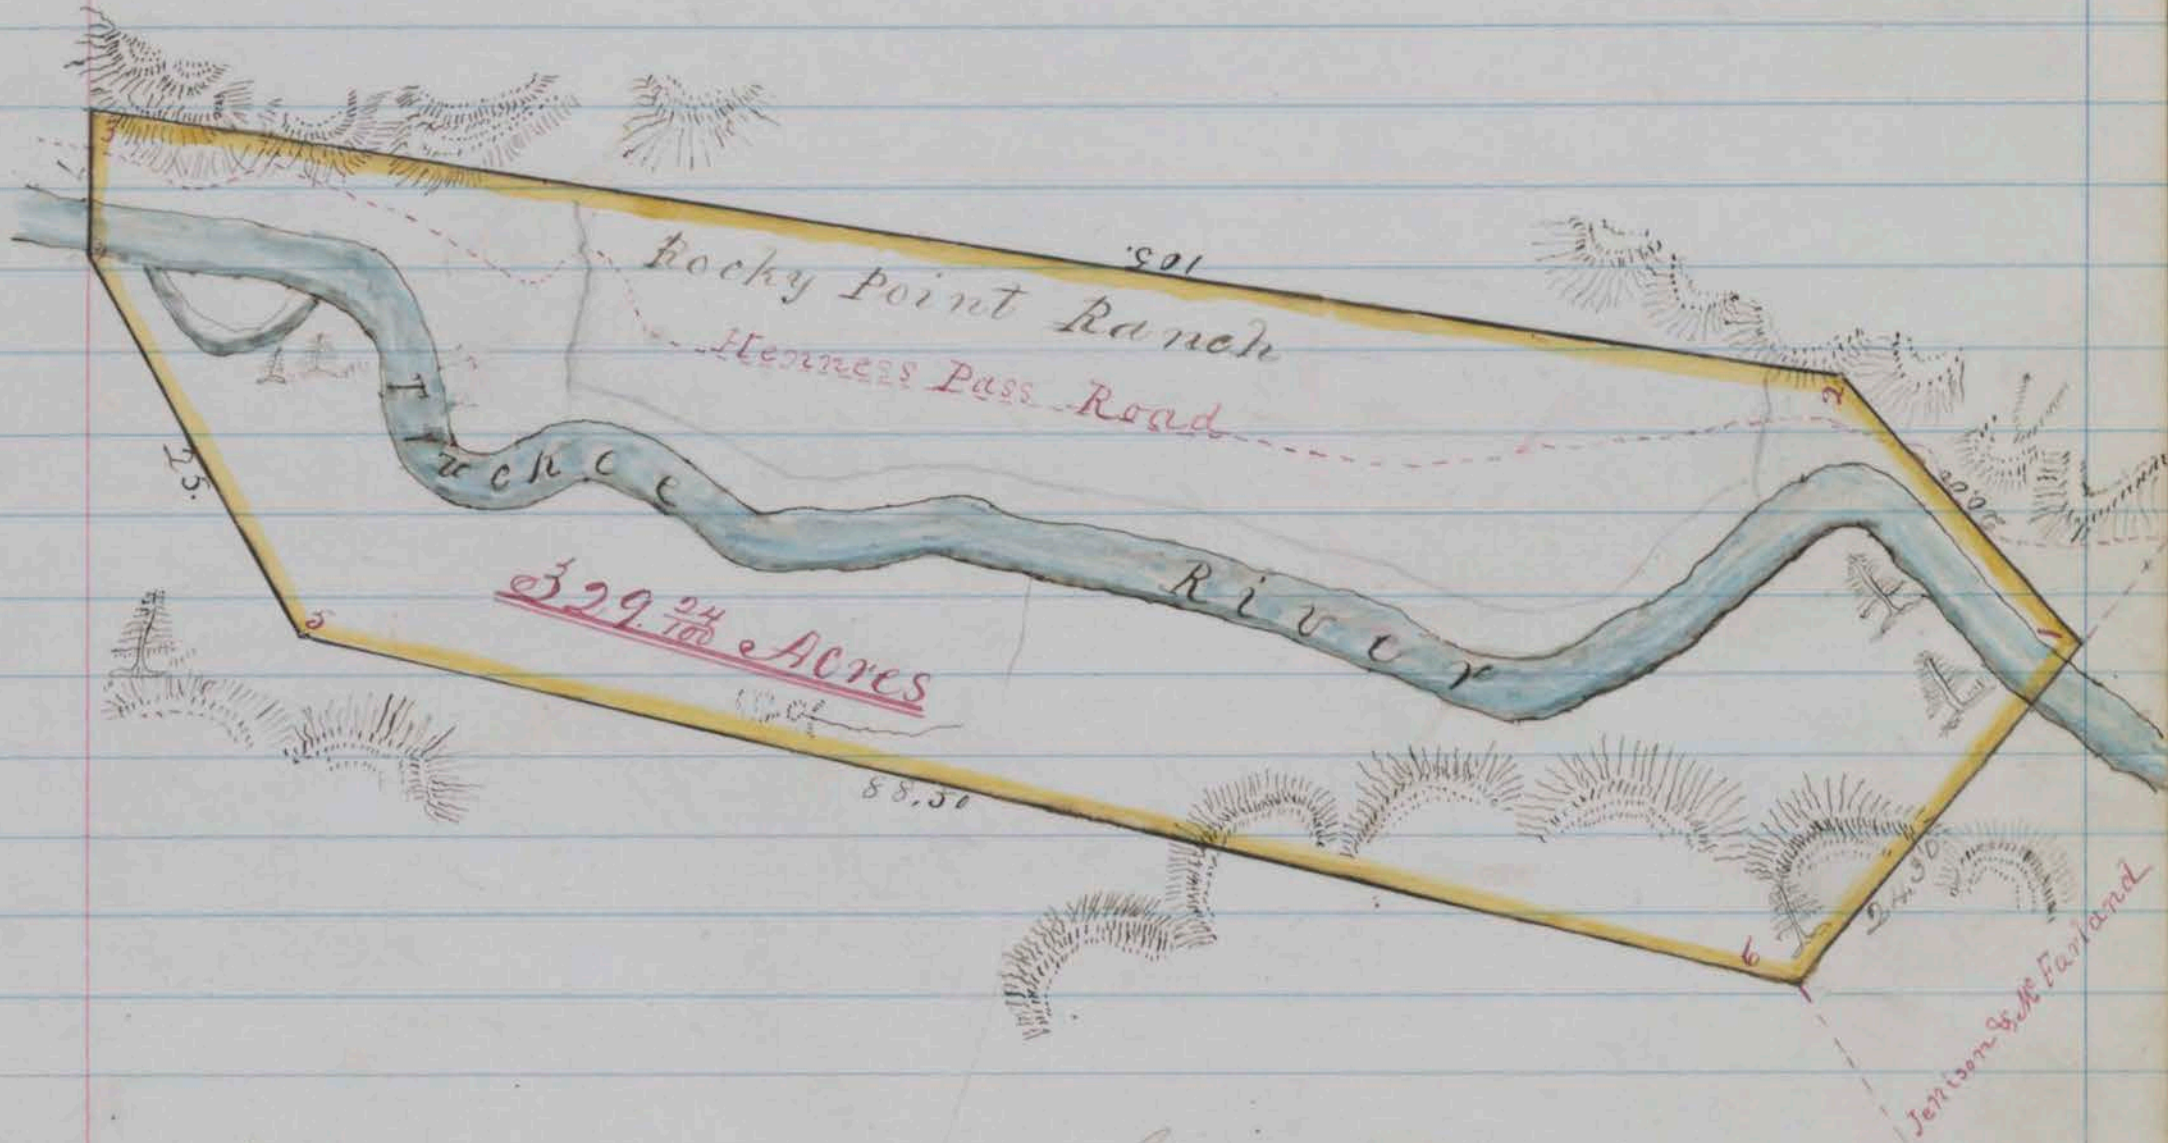 3
105.
Rocky Point Ranch
Henness Pass Road
2
20.00
Truckee River
25.
329. 24/100 Acres
1
5
88.50
24.90
6
Jenison & McFarland